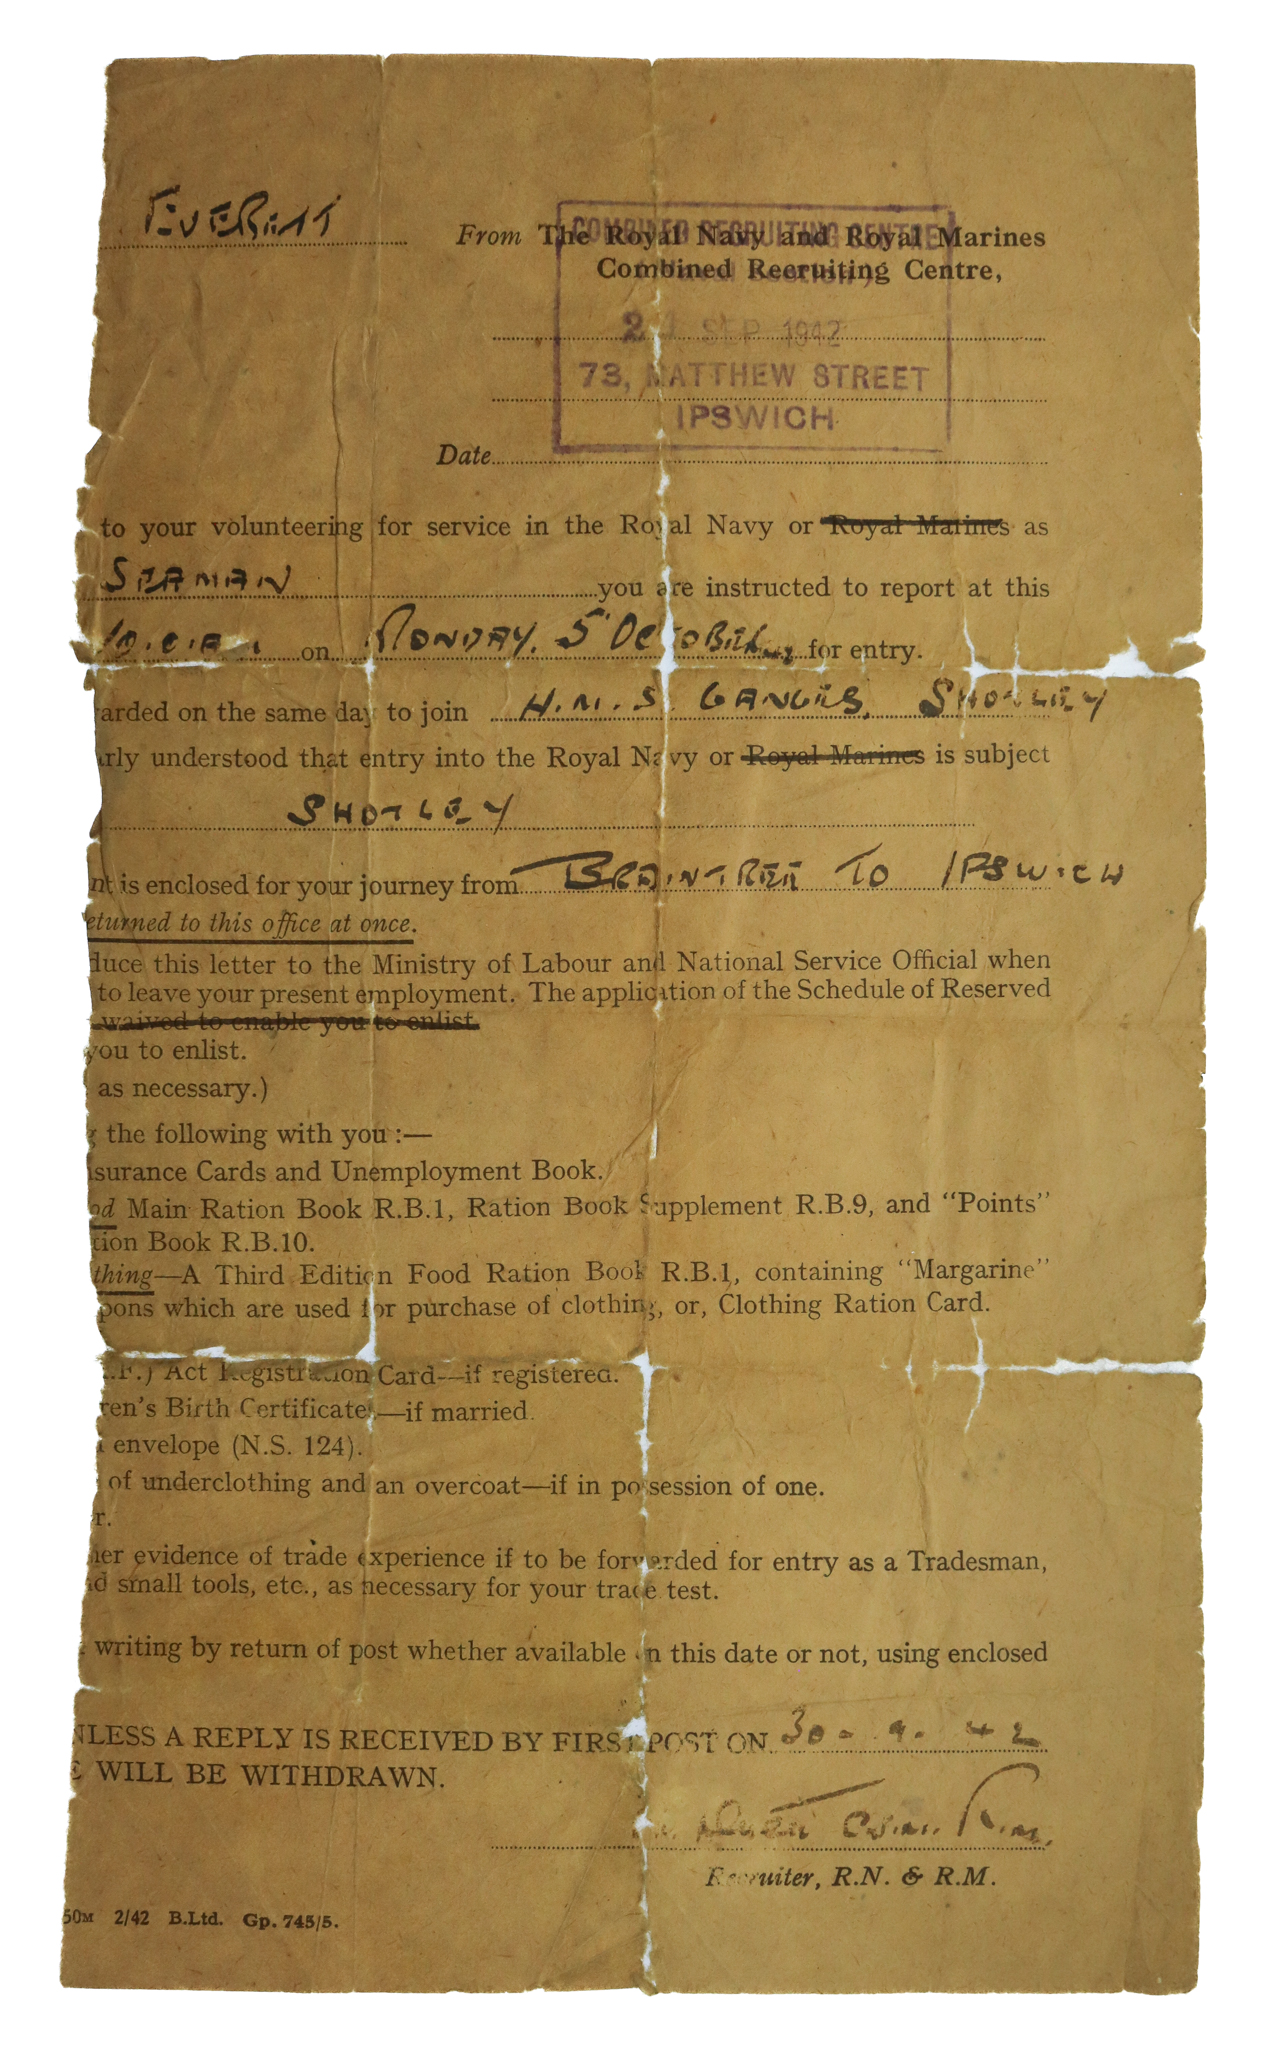 EVERETT
From The Royal Navy and Royal Marines
COMBINED RECRUITING CENTRE
Combined Recruiting Centre,
SEP 1942
73, MATTHEW STREET
IPSWICH
Date
to your volunteering for service in the Royal Navy or Royal Marines as
SEAMAN you are instructed to report at this
on MONDAY. 5 OCTOBER for entry.
arded on the same day to join H.M.S. GANGES, SHOTLEY
rly understood that entry into the Royal Navy or Royal Marines is subject
SHOTLEY
nt is enclosed for your journey from BRAINTREE TO IPSWICH
eturned to this office at once.
duce this letter to the Ministry of Labour and National Service Official when
to leave your present employment. The application of the Schedule of Reserved
waived to enable you to enlist.
you to enlist.
as necessary.)
g the following with you :—
surance Cards and Unemployment Book.
od Main Ration Book R.B.1, Ration Book Supplement R.B.9, and "Points"
tion Book R.B.10.
thing—A Third Edition Food Ration Book R.B.1, containing "Margarine"
pons which are used for purchase of clothing, or, Clothing Ration Card.
.F.) Act Registration Card—if registered.
ren's Birth Certificates—if married.
envelope (N.S. 124).
of underclothing and an overcoat—if in possession of one.
r.
her evidence of trade experience if to be forwarded for entry as a Tradesman,
nd small tools, etc., as necessary for your trade test.
writing by return of post whether available on this date or not, using enclosed
NLESS A REPLY IS RECEIVED BY FIRST POST ON 30-9-42
E WILL BE WITHDRAWN.
Recruiter, R.N. & R.M.
50M 2/42 B.Ltd. Gp. 745/5.